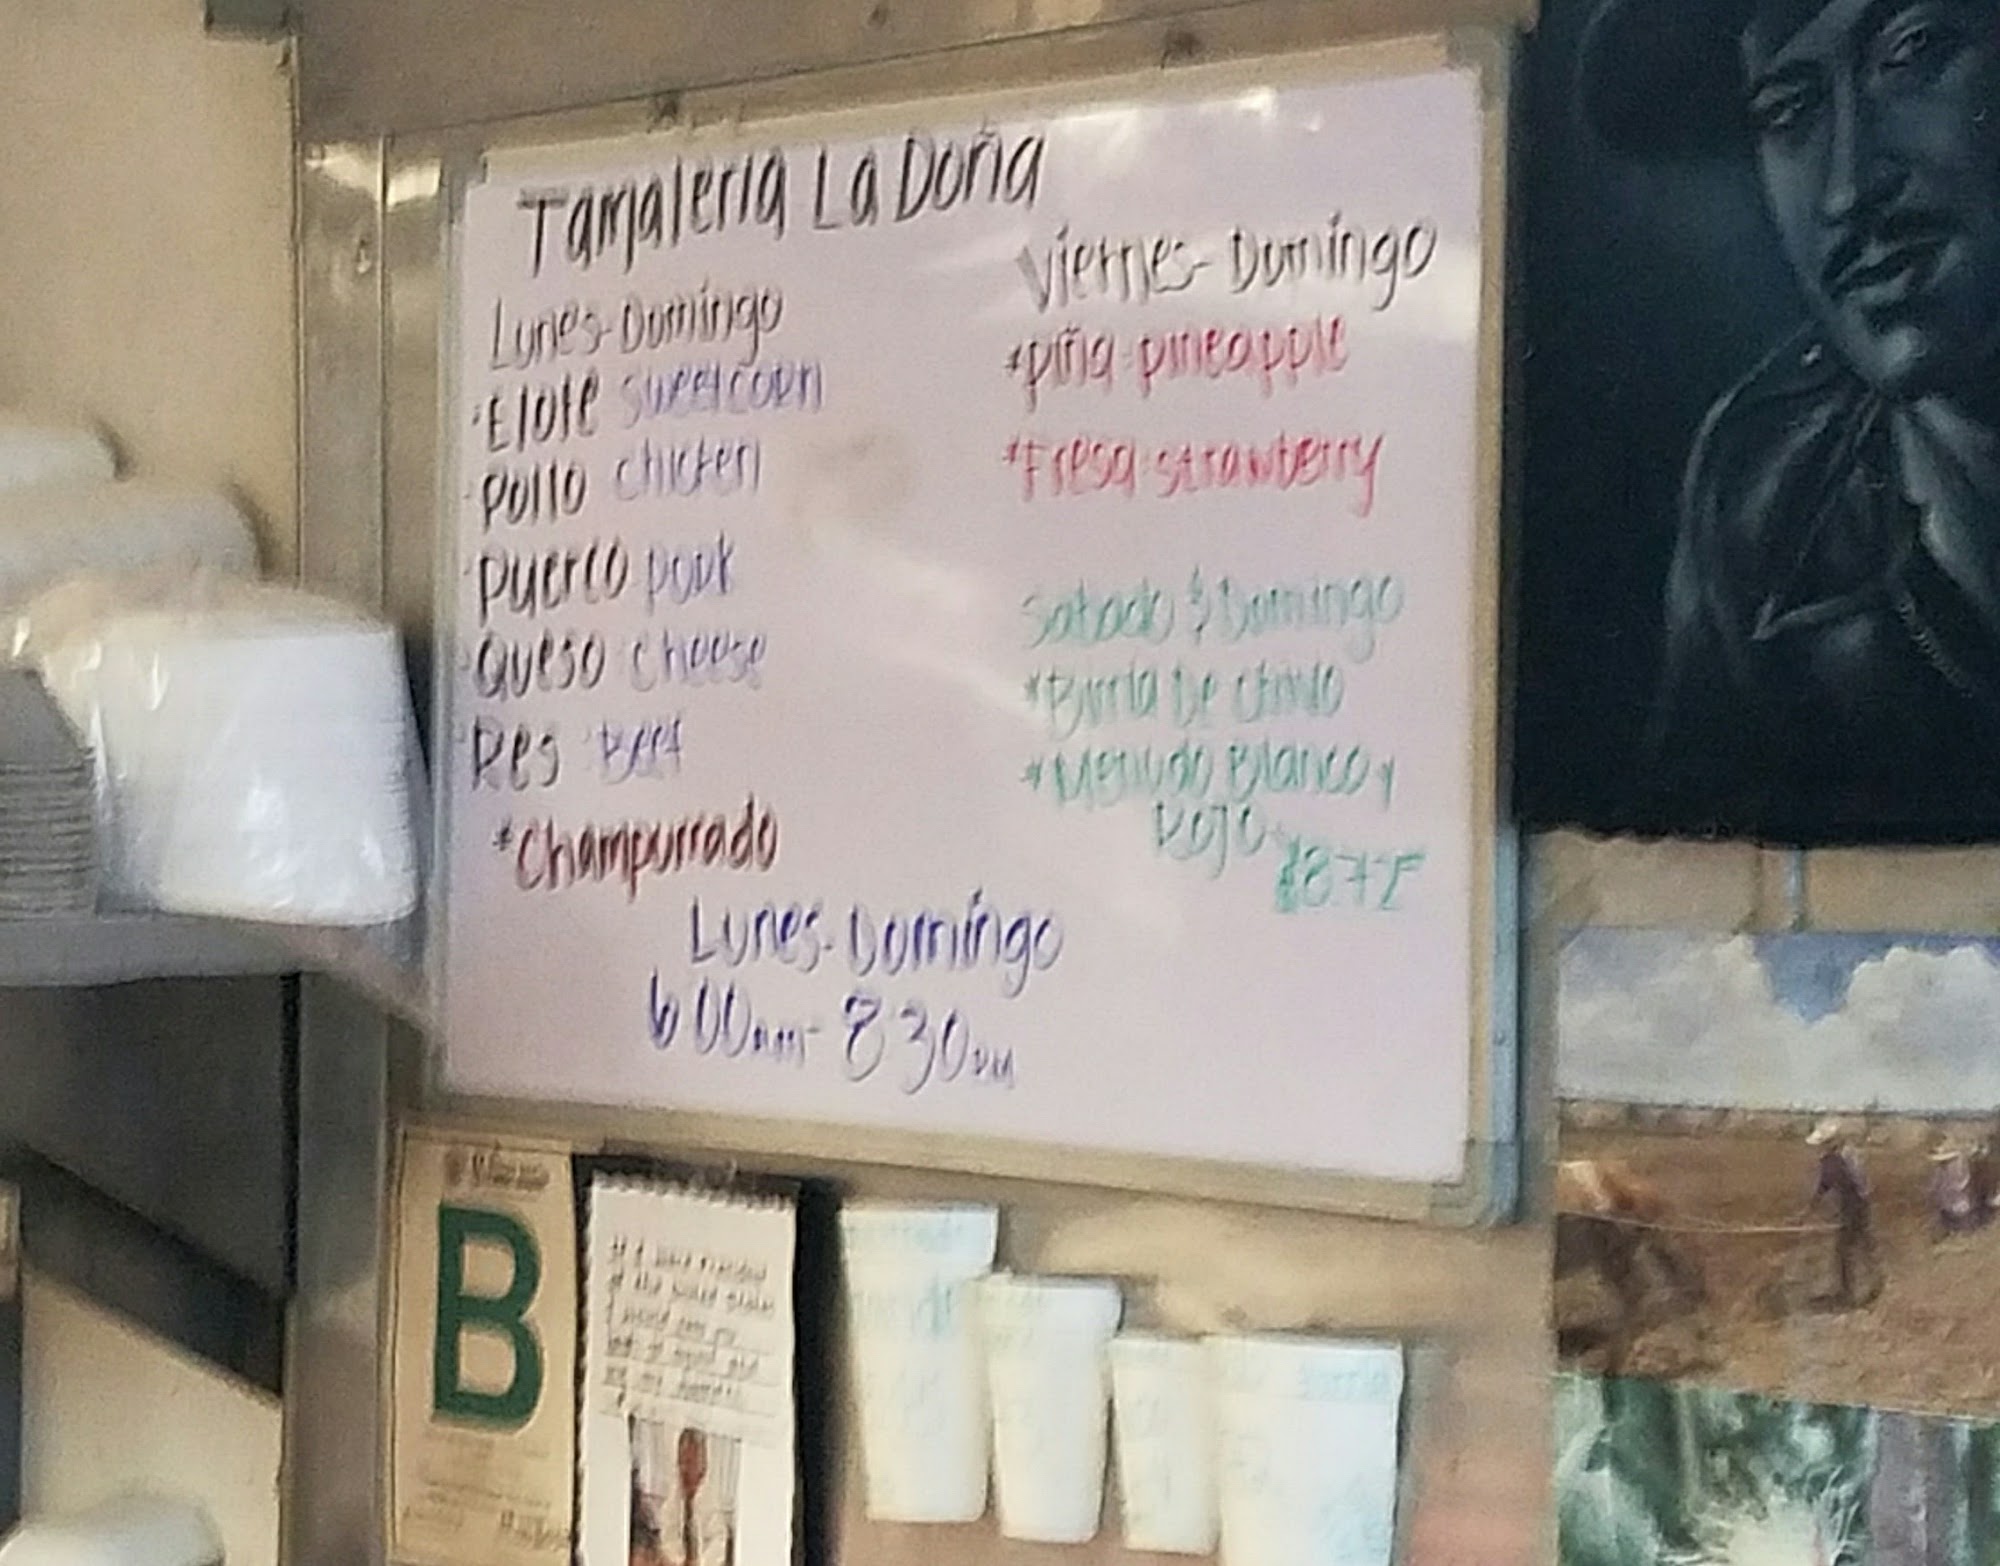 Tamaleria La Doña
Lunes-Domingo
·Elote sweetcorn
·Pollo chicken
·Puerco pork
·Queso cheese
·Res Beef
*Champurrado
Viernes-Domingo
*piña-pineapple
*Fresa-strawberry
Sabado & Domingo
*Birria De Chivo
*Menudo Blanco y
Rojo
Lunes-Domingo
6 00am-8 30pm
B
If I were President
of the United States
I would